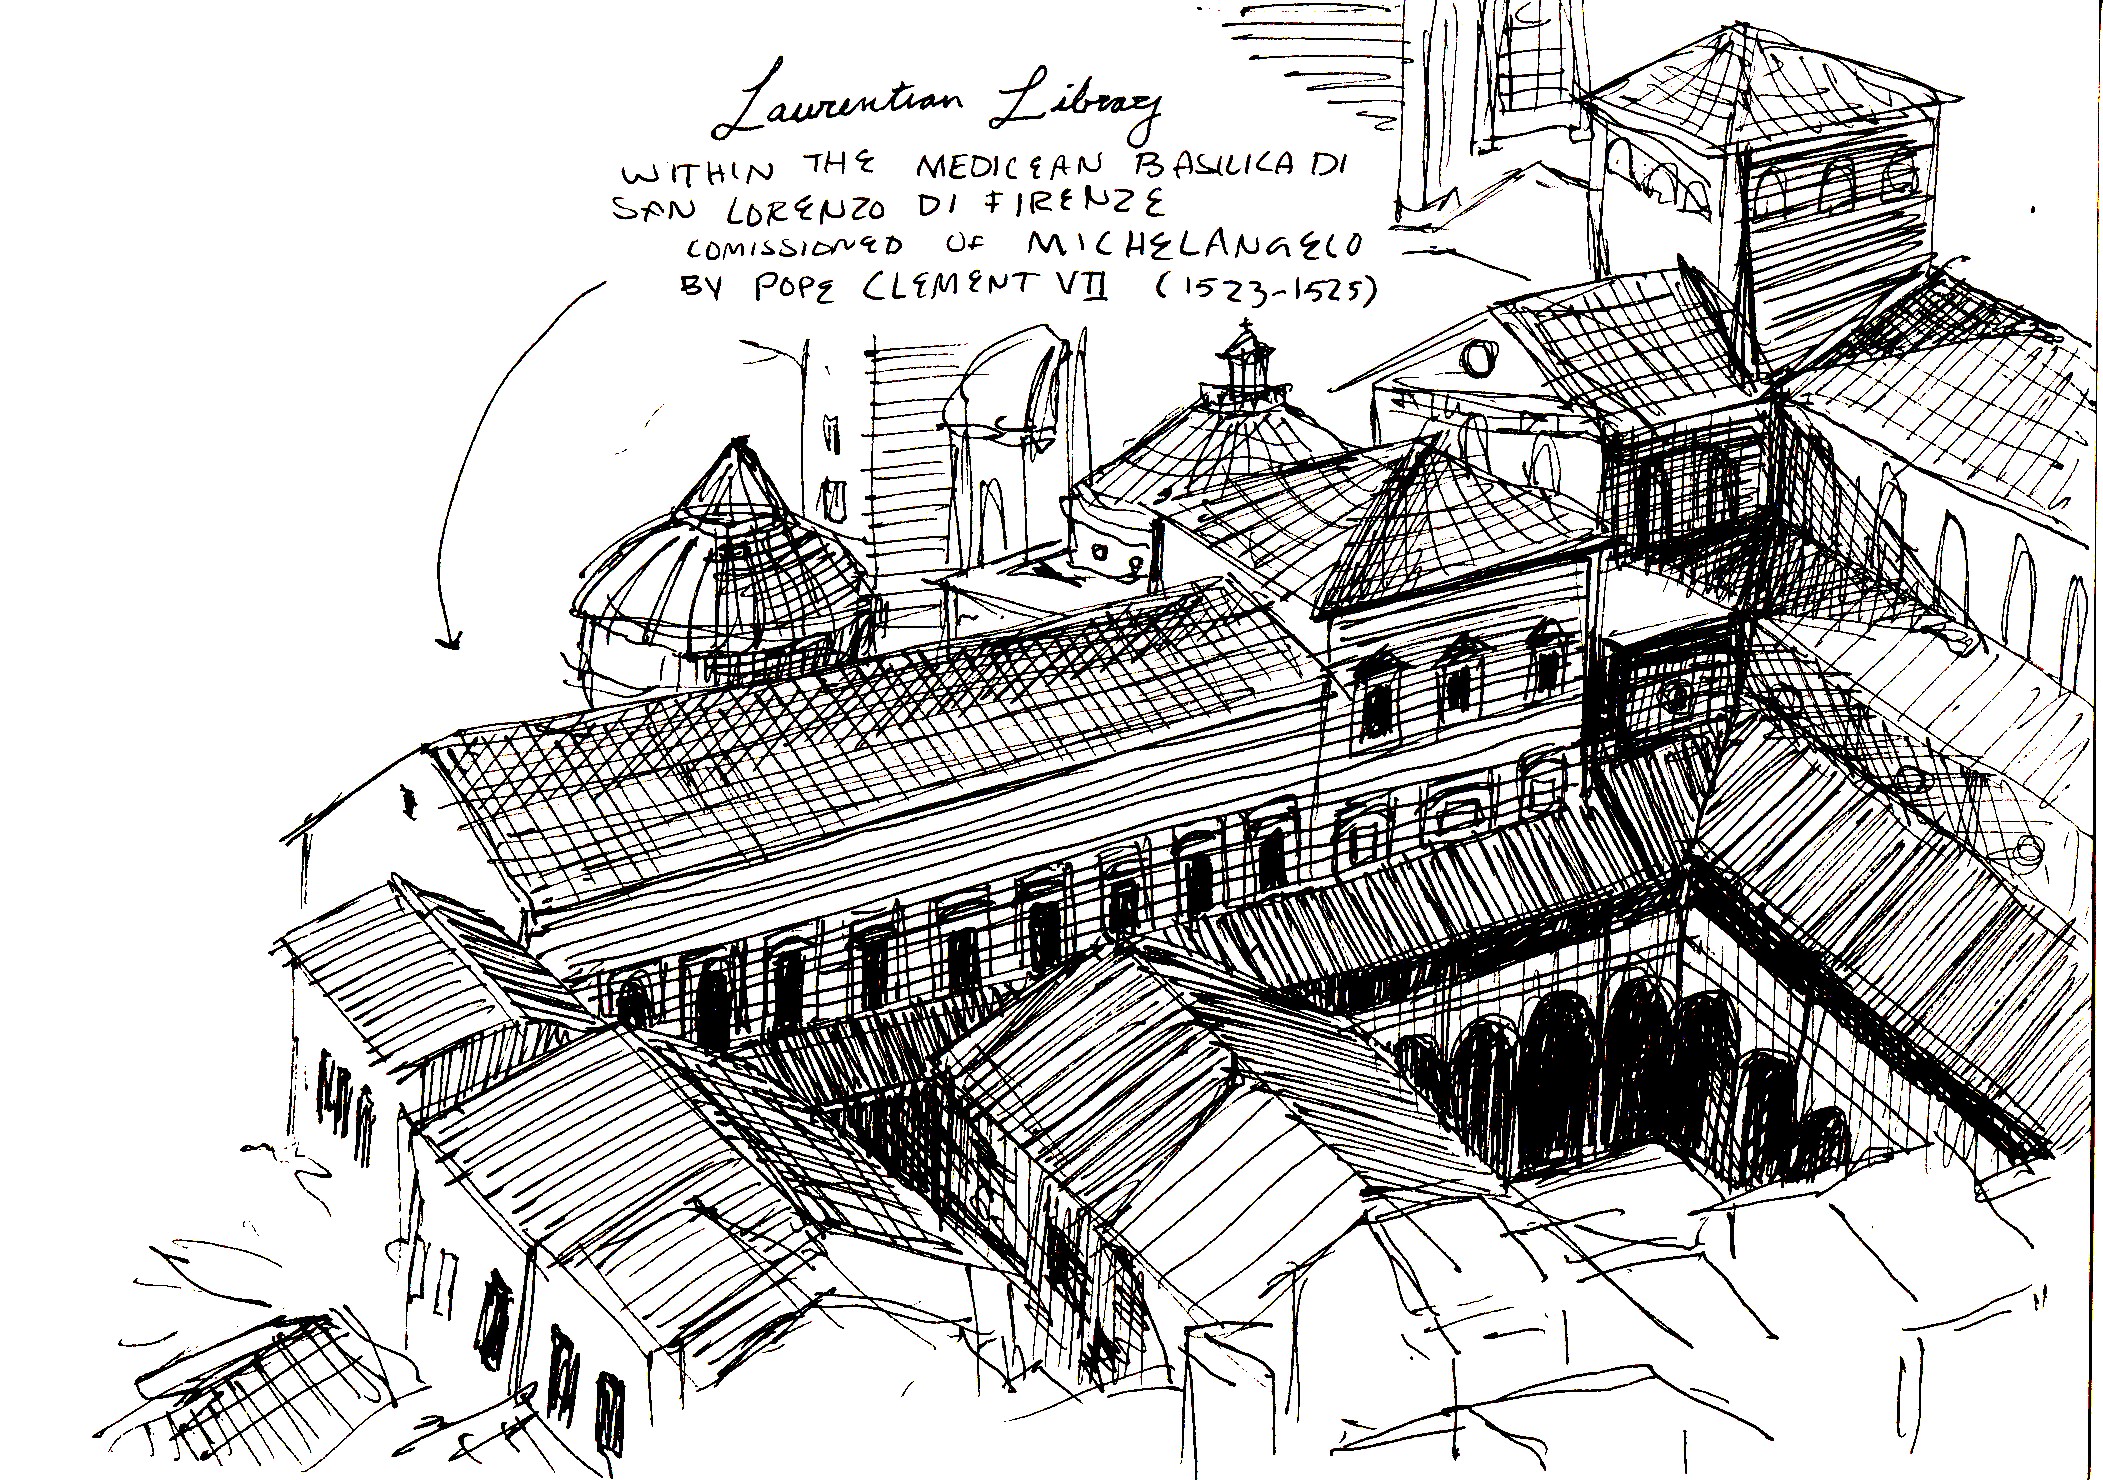 Laurentian Library
WITHIN THE MEDICEAN BASILICA DI
SAN LORENZO DI FIRENZE
COMISSIONED OF MICHELANGELO
BY POPE CLEMENT VII (1523-1525)